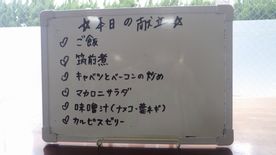 ☆本日の献立☆
ご飯
筑前煮
キャベツとベーコンの炒め
マカロニサラダ
味噌汁(ナメコ・葉ネギ)
カルピスゼリー